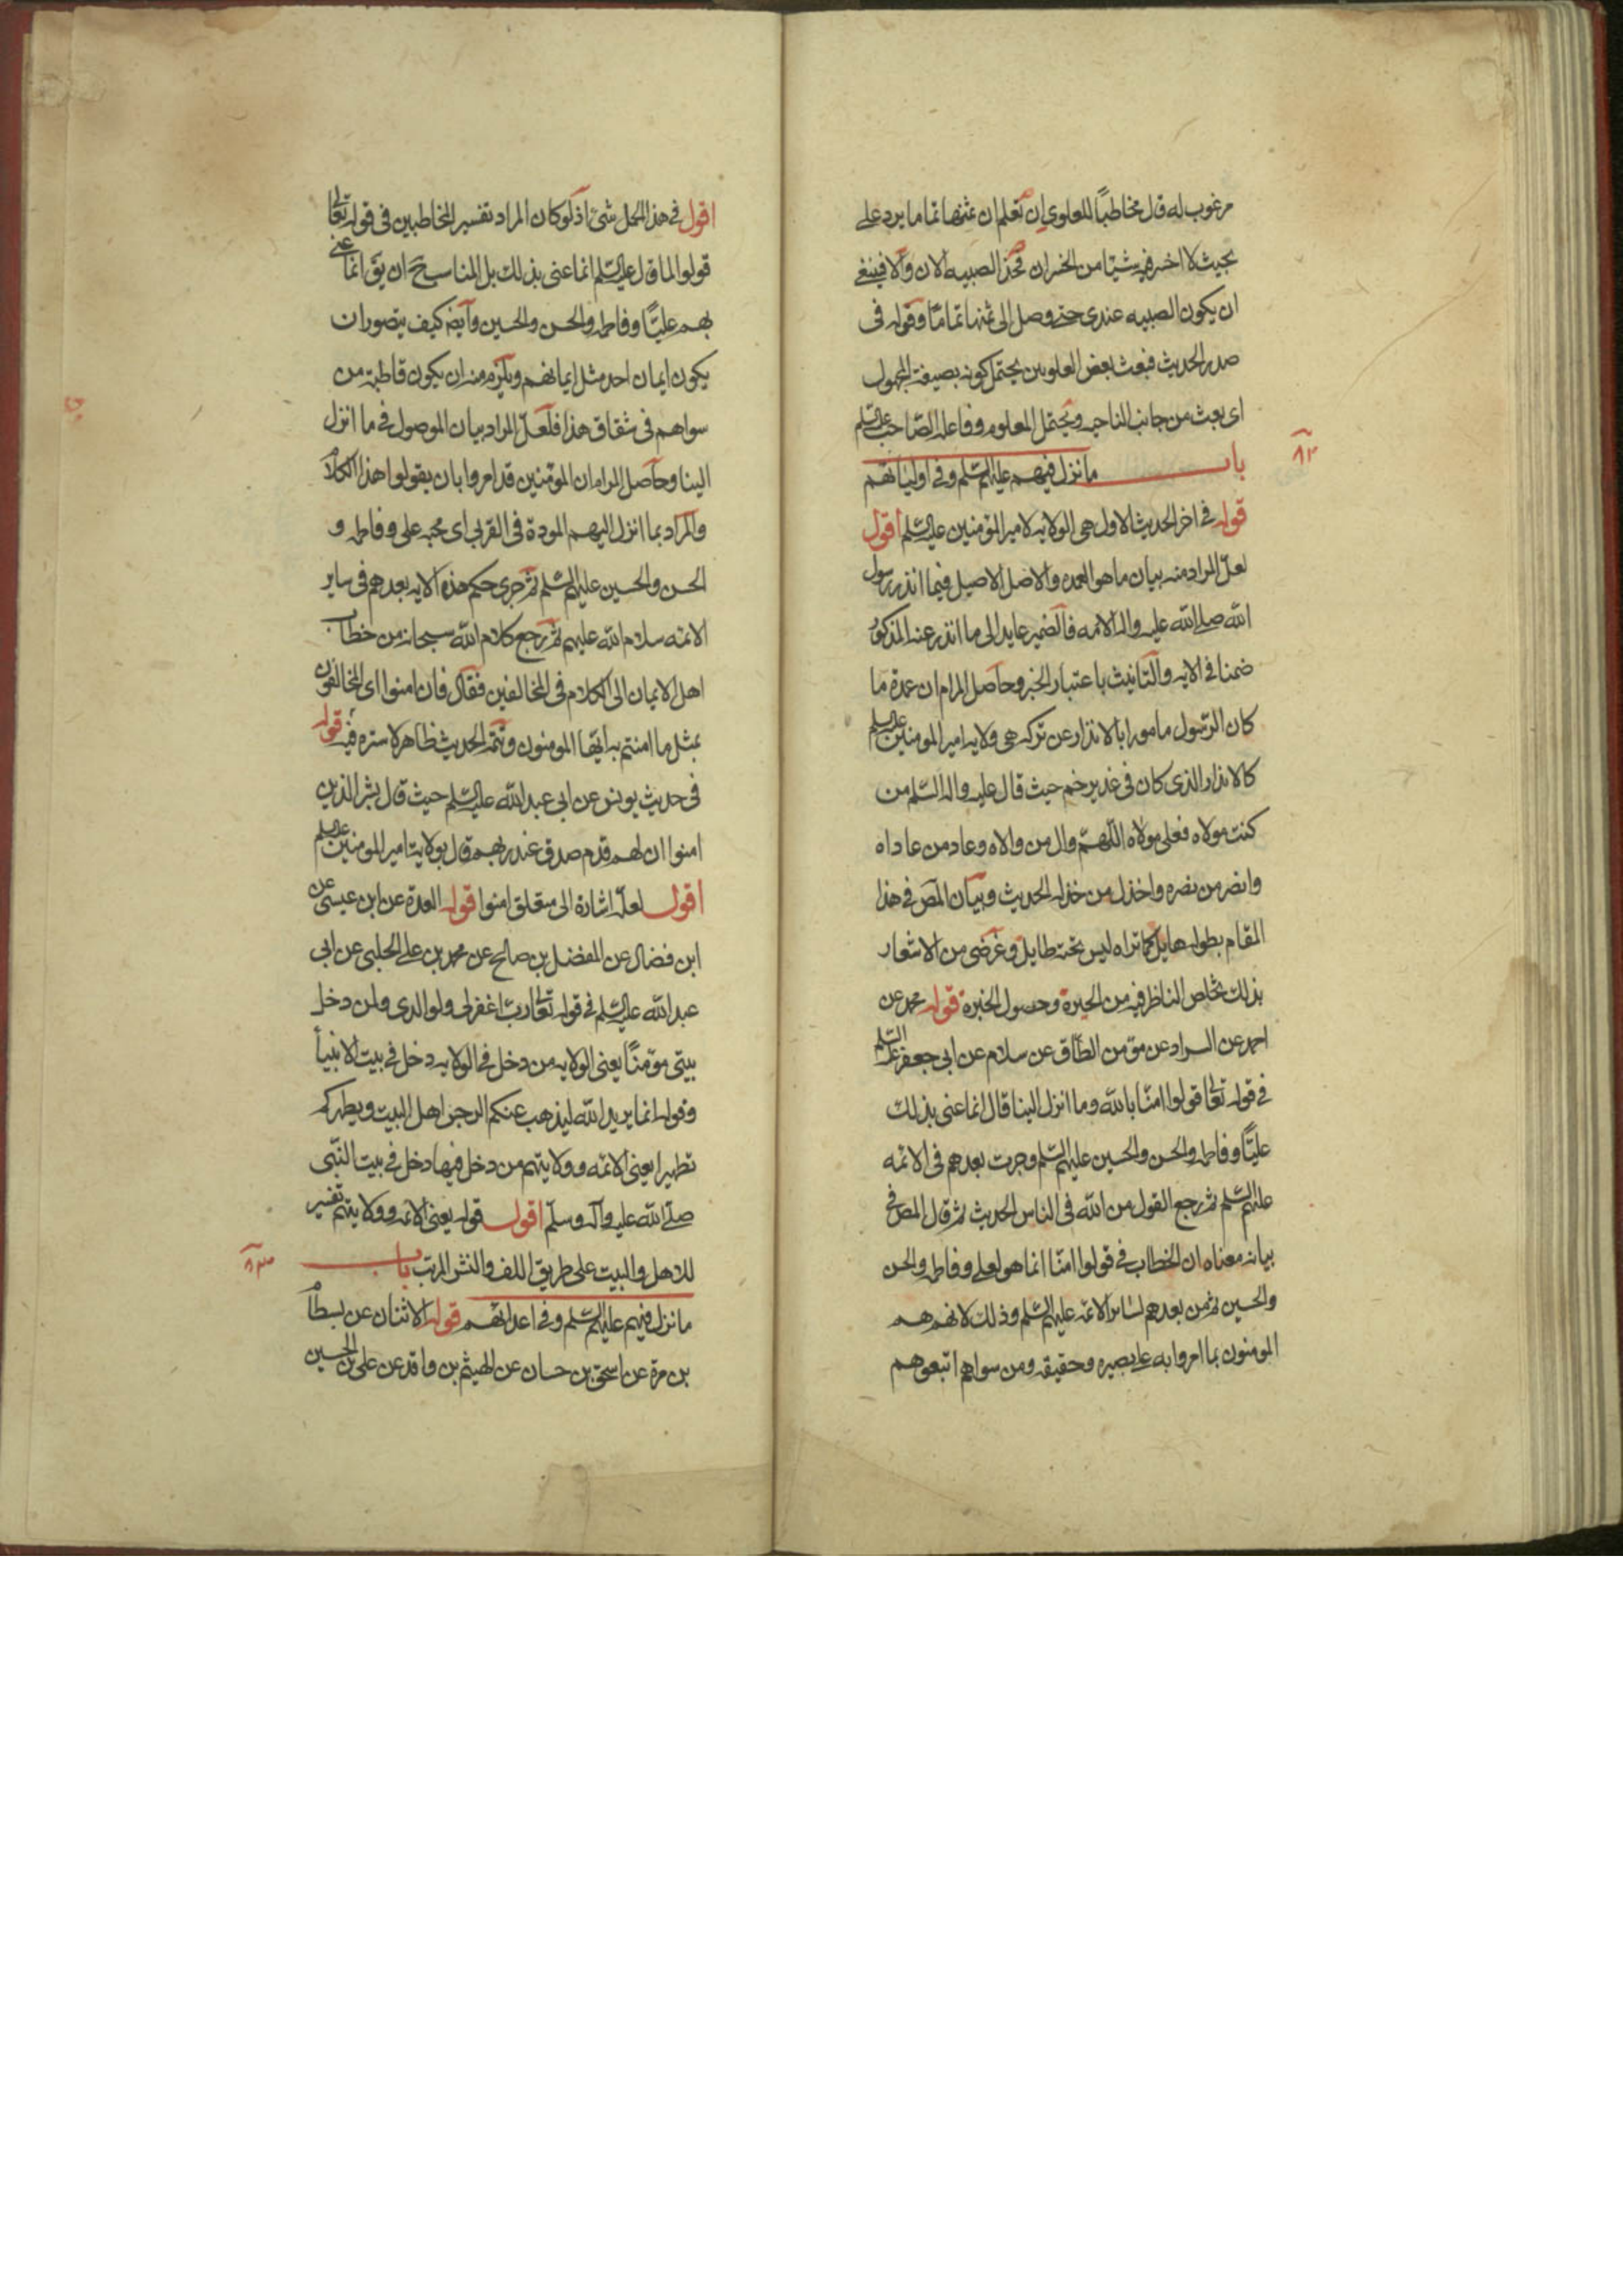 مرغوب له قال مخاطباً للعلوي ان تعلم ان ثمنها تماما يرد على
بحيث لا اخسر فيه شيئا من الخسران فخذ الصبيه الان والا فينبغي
ان يكون الصبيه عندي حتى وصل الى ثمنها تماما وقوله في
صدر الحديث فبعث بعض العلويين يحتمل كونه بصيغة المجهول
اى بعث من جانب الناحيه ويحتمل المعلوم وفاعله الصاحب عليه السلم
٨٢
باب ما نزل فيهم عليهم السلم وفي اوليائهم
قوله في اخر الحديث الاول هي الولايه لامير المؤمنين عليه السلم اقول
لعل المراد منه بيان ما هو العمده والاصل الاصيل فيما انذر رسول
الله صلى الله عليه واله الامه فالضمير عايد الى ما انذر عنه المذكور
ضمنا في الايه والتانيث باعتبار الخبر وحاصل المرام ان عمدة ما
كان الرسول مامورا بالانذار عن تركه هي ولايه امير المومنين عليه السلم
كالانذار الذى كان في غدير خم حيث قال عليه واله السلم من
كنت مولاه فعلى مولاه اللهم وال من والاه وعاد من عاداه
وانصر من نصره واخذل من خذله الحديث وبيان المص في هذا
المقام بطوله هايل كما تراه ليس تحته طايل وغرضى من الاشعار
بذلك تخلص الناظر فيه من الحيرة وحصول الخبرة قوله محمد عن
احمد عن السراد عن مؤمن الطاق عن سلام عن ابى جعفر عليه السلم
في قوله تعالى قولوا امنا بالله وما انزل الينا قال انما عنى بذلك
علياً وفاطمه والحسن والحسين عليهم السلم وجرت بعدهم في الائمه
عليهم السلم ثم رجع القول من الله في الناس الحديث ثم قال المص في
بيانه معناه ان الخطاب في قولوا امنا انما هو لعلى وفاطمه والحسن
والحسين ثم من بعدهم لسائر الائمه عليهم السلم وذلك لانهم هم
المومنون بما امروا به على بصيره وحقيقه ومن سواهم اتبعوهم
اقول في هذا المحمل شئ اذ لو كان المراد تفسير المخاطبين في قوله تعالى
قولوا لما قال عليه السلم انما عنى بذلك بل المناسب ح ان يق انما عنى
بهم علياً وفاطمه والحسن والحسين وايضه كيف يتصور ان
يكون ايمان احد مثل ايمانهم ويلزم منه ان يكون قاطبة من
سواهم في شقاق هذا فلعل المراد بيان الموصول في ما انزل
الينا وحاصل المرام ان المؤمنين قد امروا بان يقولوا هذا الكلام
والمراد بما انزل اليهم المودة في القربى اى محبه على وفاطمه و
الحسن والحسين عليهم السلم ثم جرى حكم هذه الايه بعدهم في ساير
الائمه سلام الله عليهم ثم رجع كلام الله سبحانه من خطاب
اهل الايمان الى الكلام في المخالفين فقال فان امنوا اى المخالفون
بمثل ما امنتم به ايها المومنون وتتمة الحديث ظاهر لا ستره فيه قوله
في حديث يونس عن ابى عبد الله عليه السلم حيث قال بشر الذين
امنوا ان لهم قدم صدق عند ربهم قال بولاية امير المومنين عليه السلم
اقول لعله اشارة الى متعلق امنوا قوله العدة عن ابن عيسى عن
ابن فضال عن المفضل بن صالح عن محمد بن على الحلبى عن ابى
عبد الله عليه السلم في قوله تعالى رب اغفرلى ولوالدى ولمن دخل
بيتى مؤمناً يعنى الولايه من دخل في الولايه دخل في بيت الانبياء
وقوله انما يريد الله ليذهب عنكم الرجس اهل البيت ويطهركم
تطهيرا يعنى الائمه وولايتهم من دخل فيها دخل في بيت النبى
صلى الله عليه وآله وسلم اقول قوله يعنى الائمه وولايتهم تفسير
للاهل والبيت على طريق اللف والنشر المرتب باب
٨٣
ما نزل فيهم عليهم السلم وفي اعدائهم قوله الاثنان عن بسطام
بن مرة عن اسحق بن حسان عن الهيثم بن واقد عن على بن الحسين